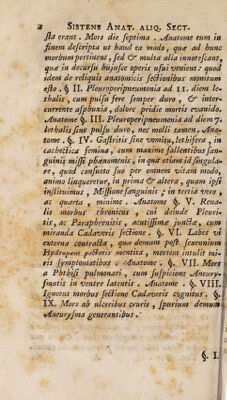 2 SISTENS ANAT. ALIQ. SECT.
sta erant. Mors die septima. Anatome eum in
finem descripta ut haud ea modo, quæ ad hunc
morbum pertinent, sed & multa alia innotescant,
quæ in decursu hujusce operis usui venient: quod
idem de reliquis anatomicis sectionibus monitum
esto. §. II. Pleuroperipneumonia ad 11. diem le-
thalis, cum pulsu fere semper duro, & inter-
currente asphyxia, dolore pridie mortis evanido.
Anatome §. III. Pleuroperipneumonia ad diem 7.
lethalis sine pulsu duro, nec molli tamen. Ana-
tome. §. IV. Gastritis sine vomitu, lethifera, in
cachectica femina, cum maxime fallentibus san-
guinis missi phænomenis, in qua etiam id singula-
re, quod consueto suo per omnem vitam modo,
animo linqueretur, in prima & altera, quam ipsi
instituimus, Missione sanguinis; in tertia vero,
ac quarta, minime. Anatome §. V. Rena-
lis morbus chronicus, cui deinde Pleuri-
tis, ac Paraphrenitis, acutissima juncta, cum
miranda Cadaveris sectione. §. VI. Labes vi
externa contracta, quæ demum post sexennium
Hydropem pectoris mentita, mortem intulit mi-
ris symptomatibus. Anatome. §. VII. Mors
a Phthisi pulmonari, cum suspicione Aneury-
smatis in ventre latentis. Anatome. §. VIII.
Ignotus morbus sectione Cadaveris cognitus. §.
IX. Mors ab ulceribus cruris, spurium demum
Aneurysma generantibus.
§. I.